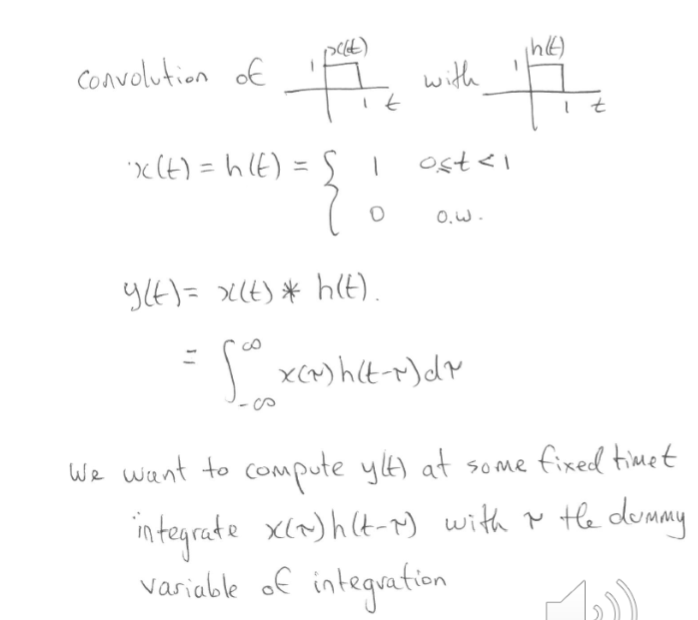 convolution of x(t) 1 1 t with h(t) 1 1 t
x(t) = h(t) = { 1 0≤t<1
0 o.w.
y(t) = x(t) * h(t).
= ∫_{-∞}^{∞} x(τ)h(t-τ)dτ
We want to compute y(t) at some fixed time t
integrate x(τ)h(t-τ) with τ the dummy
variable of integration